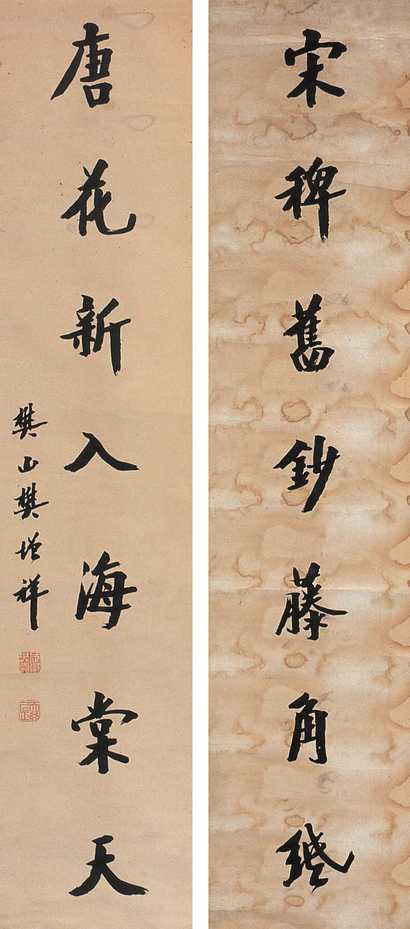 宋稗舊鈔藤角紙
唐花新入海棠天
樊山樊增祥